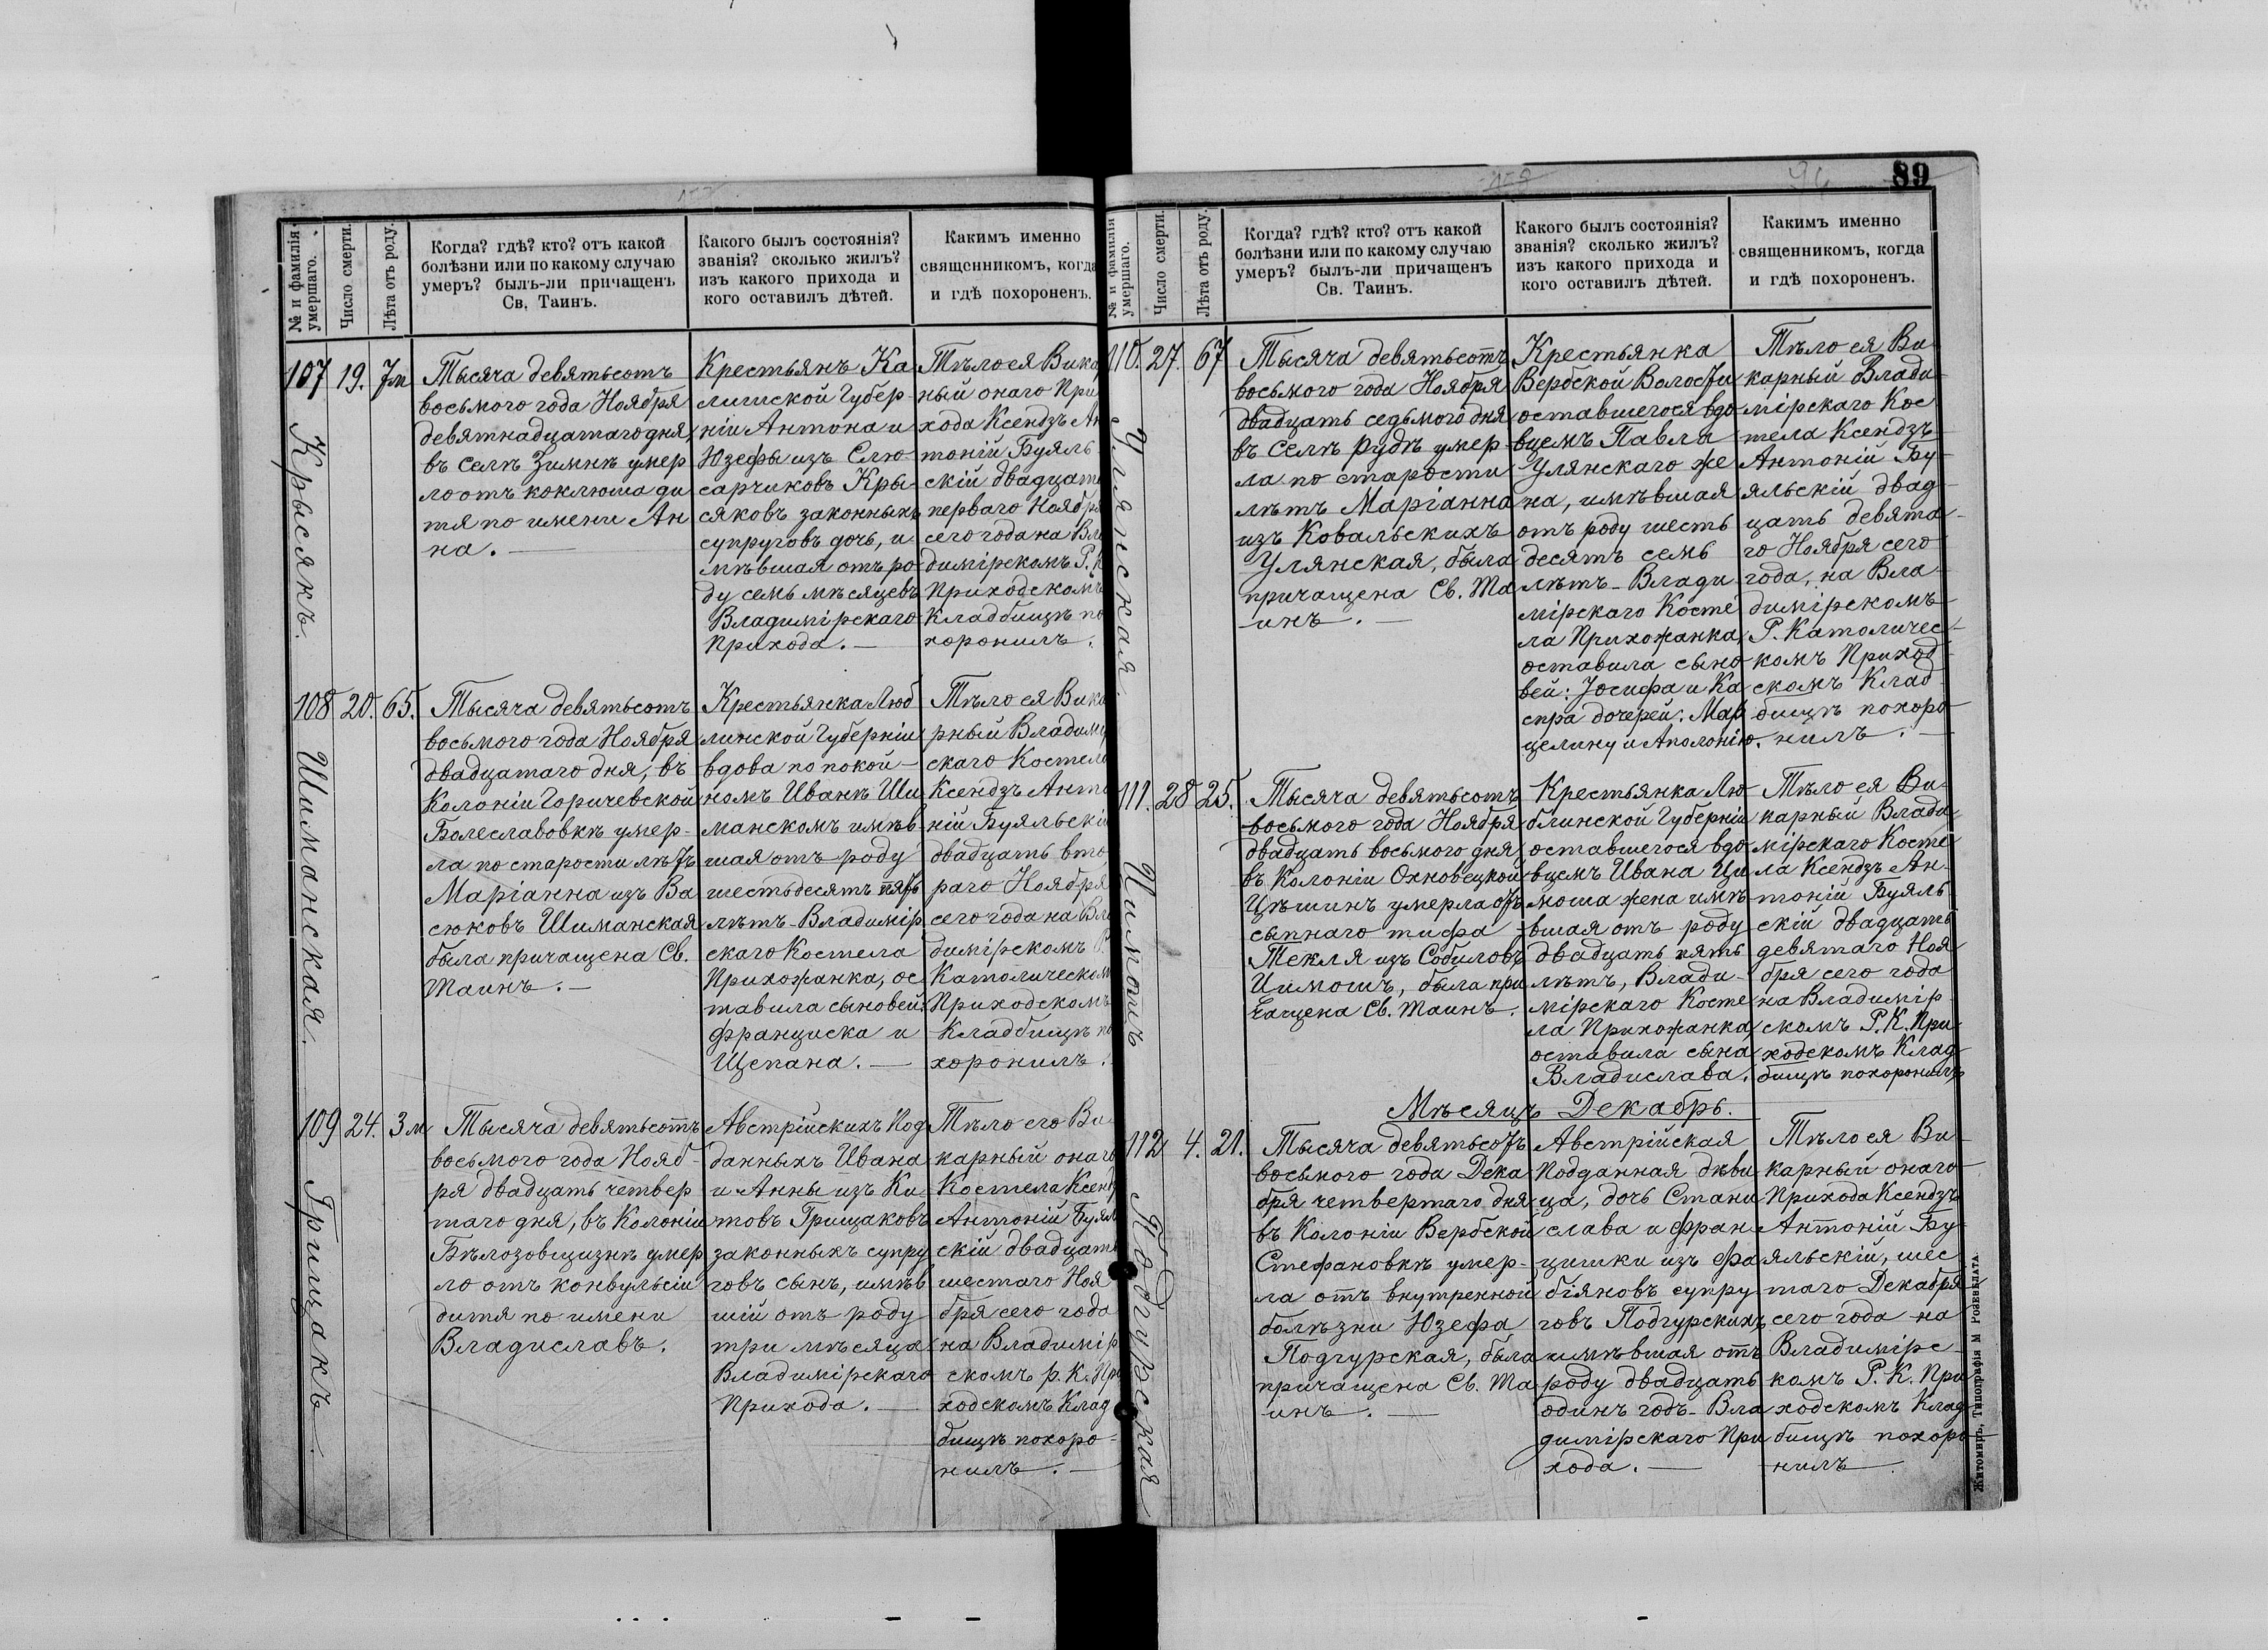 89
№ и фамилія умершаго.
Число смерти.
Лѣта отъ роду.
Когда? гдѣ? кто? отъ какой
болѣзни или по какому случаю
умеръ? былъ-ли причащенъ
Св. Таинъ.
Какого былъ состоянія?
званія? сколько жилъ?
изъ какого прихода и
кого оставилъ дѣтей.
Какимъ именно
священникомъ, когда
и гдѣ похороненъ.
107
Крысякъ.
19.
7м
Тысяча девятьсотъ
восьмого года Ноября
девятнадцатаго дня,
въ селѣ Зимнѣ умер
ло отъ коклюша ди
тя по имени Ан
на.
Крестьянъ Ка
лишской Губер-
ніи Антона и
Юзефы изъ Слю
сарчиковъ Кры-
сяковъ законныхъ
супруговъ дочь, и
мѣвшая отъ ро
ду семь мѣсяцевъ
Владимірскаго
Прихода.
Тѣло ея Вика
ный онаго При
хода Ксендзъ Ан
тоній Буяль
скій двадцать
перваго Ноября
сего года на Вла
димірскомъ Р. К
Приходскомъ
Кладбищѣ по
хоронилъ.
108
Шиманская.
20.
65.
Тысяча девятьсотъ
восьмого года Ноября
двадцатаго дня, въ
Колоніи Горичевской
Болеславовкѣ умер-
ла по старости лѣтъ
Маріанна изъ Ва
сюковъ Шиманская
была причащена Св.
Таинъ.
Крестьянка Люб
линской Губерніи
вдова по покой-
номъ Иванѣ Ши
манскомъ имѣв
шая отъ роду
шестьдесятъ пять
лѣтъ - Владимір
скаго Костела
Прихожанка, ос
тавила сыновей:
Франциска и
Щепана.
Тѣло ея Вика
рный Владимір
скаго Костела
Ксендзъ Анто
ній Буяльскій
двадцать вто
раго Ноября
сего года на Вла
димірскомъ Р.
Католическомъ
Приходскомъ
Кладбищѣ по
хоронилъ.
109
Грицакъ.
24.
3м
Тысяча девятьсотъ
восьмого года Нояб-
ря двадцать четвер
таго дня, въ Колоніи
Бѣлозовщизнѣ умер
ло отъ конвульсіи
дитя по имени
Владиславъ.
Австрійскихъ Под
данныхъ Ивана
и Анны изъ Ки
товъ Грицаковъ
законныхъ супру
говъ сынъ, имѣв
шій отъ роду
три мѣсяца
Владимірскаго
Прихода.
Тѣло его Ви
карный онаго
Костела Ксендзъ
Антоній Буяль
скій двадцать
шестаго Ноя
бря сего года
на Владимір
скомъ р. К. При
ходскомъ Клад
бищѣ похоро-
нилъ.
№ и фамилія умершаго.
Число смерти.
Лѣта отъ роду.
Когда? гдѣ? кто? отъ какой
болѣзни или по какому случаю
умеръ? былъ-ли причащенъ
Св. Таинъ.
Какого былъ состоянія?
званія? сколько жилъ?
изъ какого прихода и
кого оставилъ дѣтей.
Какимъ именно
священникомъ, когда
и гдѣ похороненъ.
110.
Улянская.
27.
67
Тысяча девятьсотъ
восьмого года Ноября
двадцать седьмого дня
въ селѣ Рудѣ умер-
ла по старости
лѣтъ Маріанна
изъ Ковальскихъ
Улянская, была
причащена Св. Та
инъ.
Крестьянка
Вербской Волости
оставшегося вдо
вцемъ Павла
Улянскаго же
на, имѣвшая
отъ роду шесть
десятъ семь
лѣтъ - Влади
мірскаго Косте
ла Прихожанка,
оставила сыно
вей: Іосифа и Ка
спра дочерей: Мар
целину и Аполонію.
Тѣло ея Ви
карный Влади-
мірскаго Кос
тела Ксендзъ
Антоній Бу-
яльскій двад-
цать девята-
го Ноября сего
года, на Вла
димірскомъ
Р. Католичес-
комъ Приход-
скомъ Клад
бищѣ похоро
нилъ.
111.
Цимошъ
28
25.
Тысяча девятьсотъ
восьмого года Ноября
двадцать восьмого дня
въ Колоніи Охновецкой
Цѣшинъ умерла отъ
сыпнаго тифа
Текля изъ Собиловъ
Цимошъ, была при
чащена Св. Таинъ.
Крестьянка Лю
блинской Губерніи
оставшегося вдо
вцемъ Ивана Ци
моша жена имѣ
вшая отъ роду
двадцать пять
лѣтъ, Влади-
мірскаго Косте
ла Прихожанка,
оставила сына
Владислава.
Тѣло ея Ви-
карный Влади-
мірскаго Косте
ла Ксендзъ Ан-
тоній Буяль
скій двадцать
девятаго Ноя
бря сего года
на Владимір-
скомъ Р. К. При-
ходскомъ Клад-
бищѣ похоронилъ
Мѣсяцъ Декабрь.
112
Подгурская
4.
21.
Тысяча девятьсотъ
восьмого года Дека
бря четвертаго дня
въ Колоніи Вербской
Стефановкѣ умер-
ла отъ внутренной
болѣзни Юзефа
Подгурская, была
причащена Св. Та
инъ.
Австрійская
Подданная дѣви
ца, дочь Стани
слава и Фран-
цишки изъ Фа
біяновъ супру
говъ Подгурскихъ
имѣвшая отъ
роду двадцать
одинъ годъ - Вла
димірскаго При
хода.
Тѣло ея Ви-
карный онаго
Прихода Ксендзъ
Антоній Бу-
яльскій, шес
таго Декабря
сего года на
Владимірс-
комъ Р. К. При
ходскомъ Клад-
бищѣ похоро-
нилъ
Житомиръ, Типографія М. Розенблата